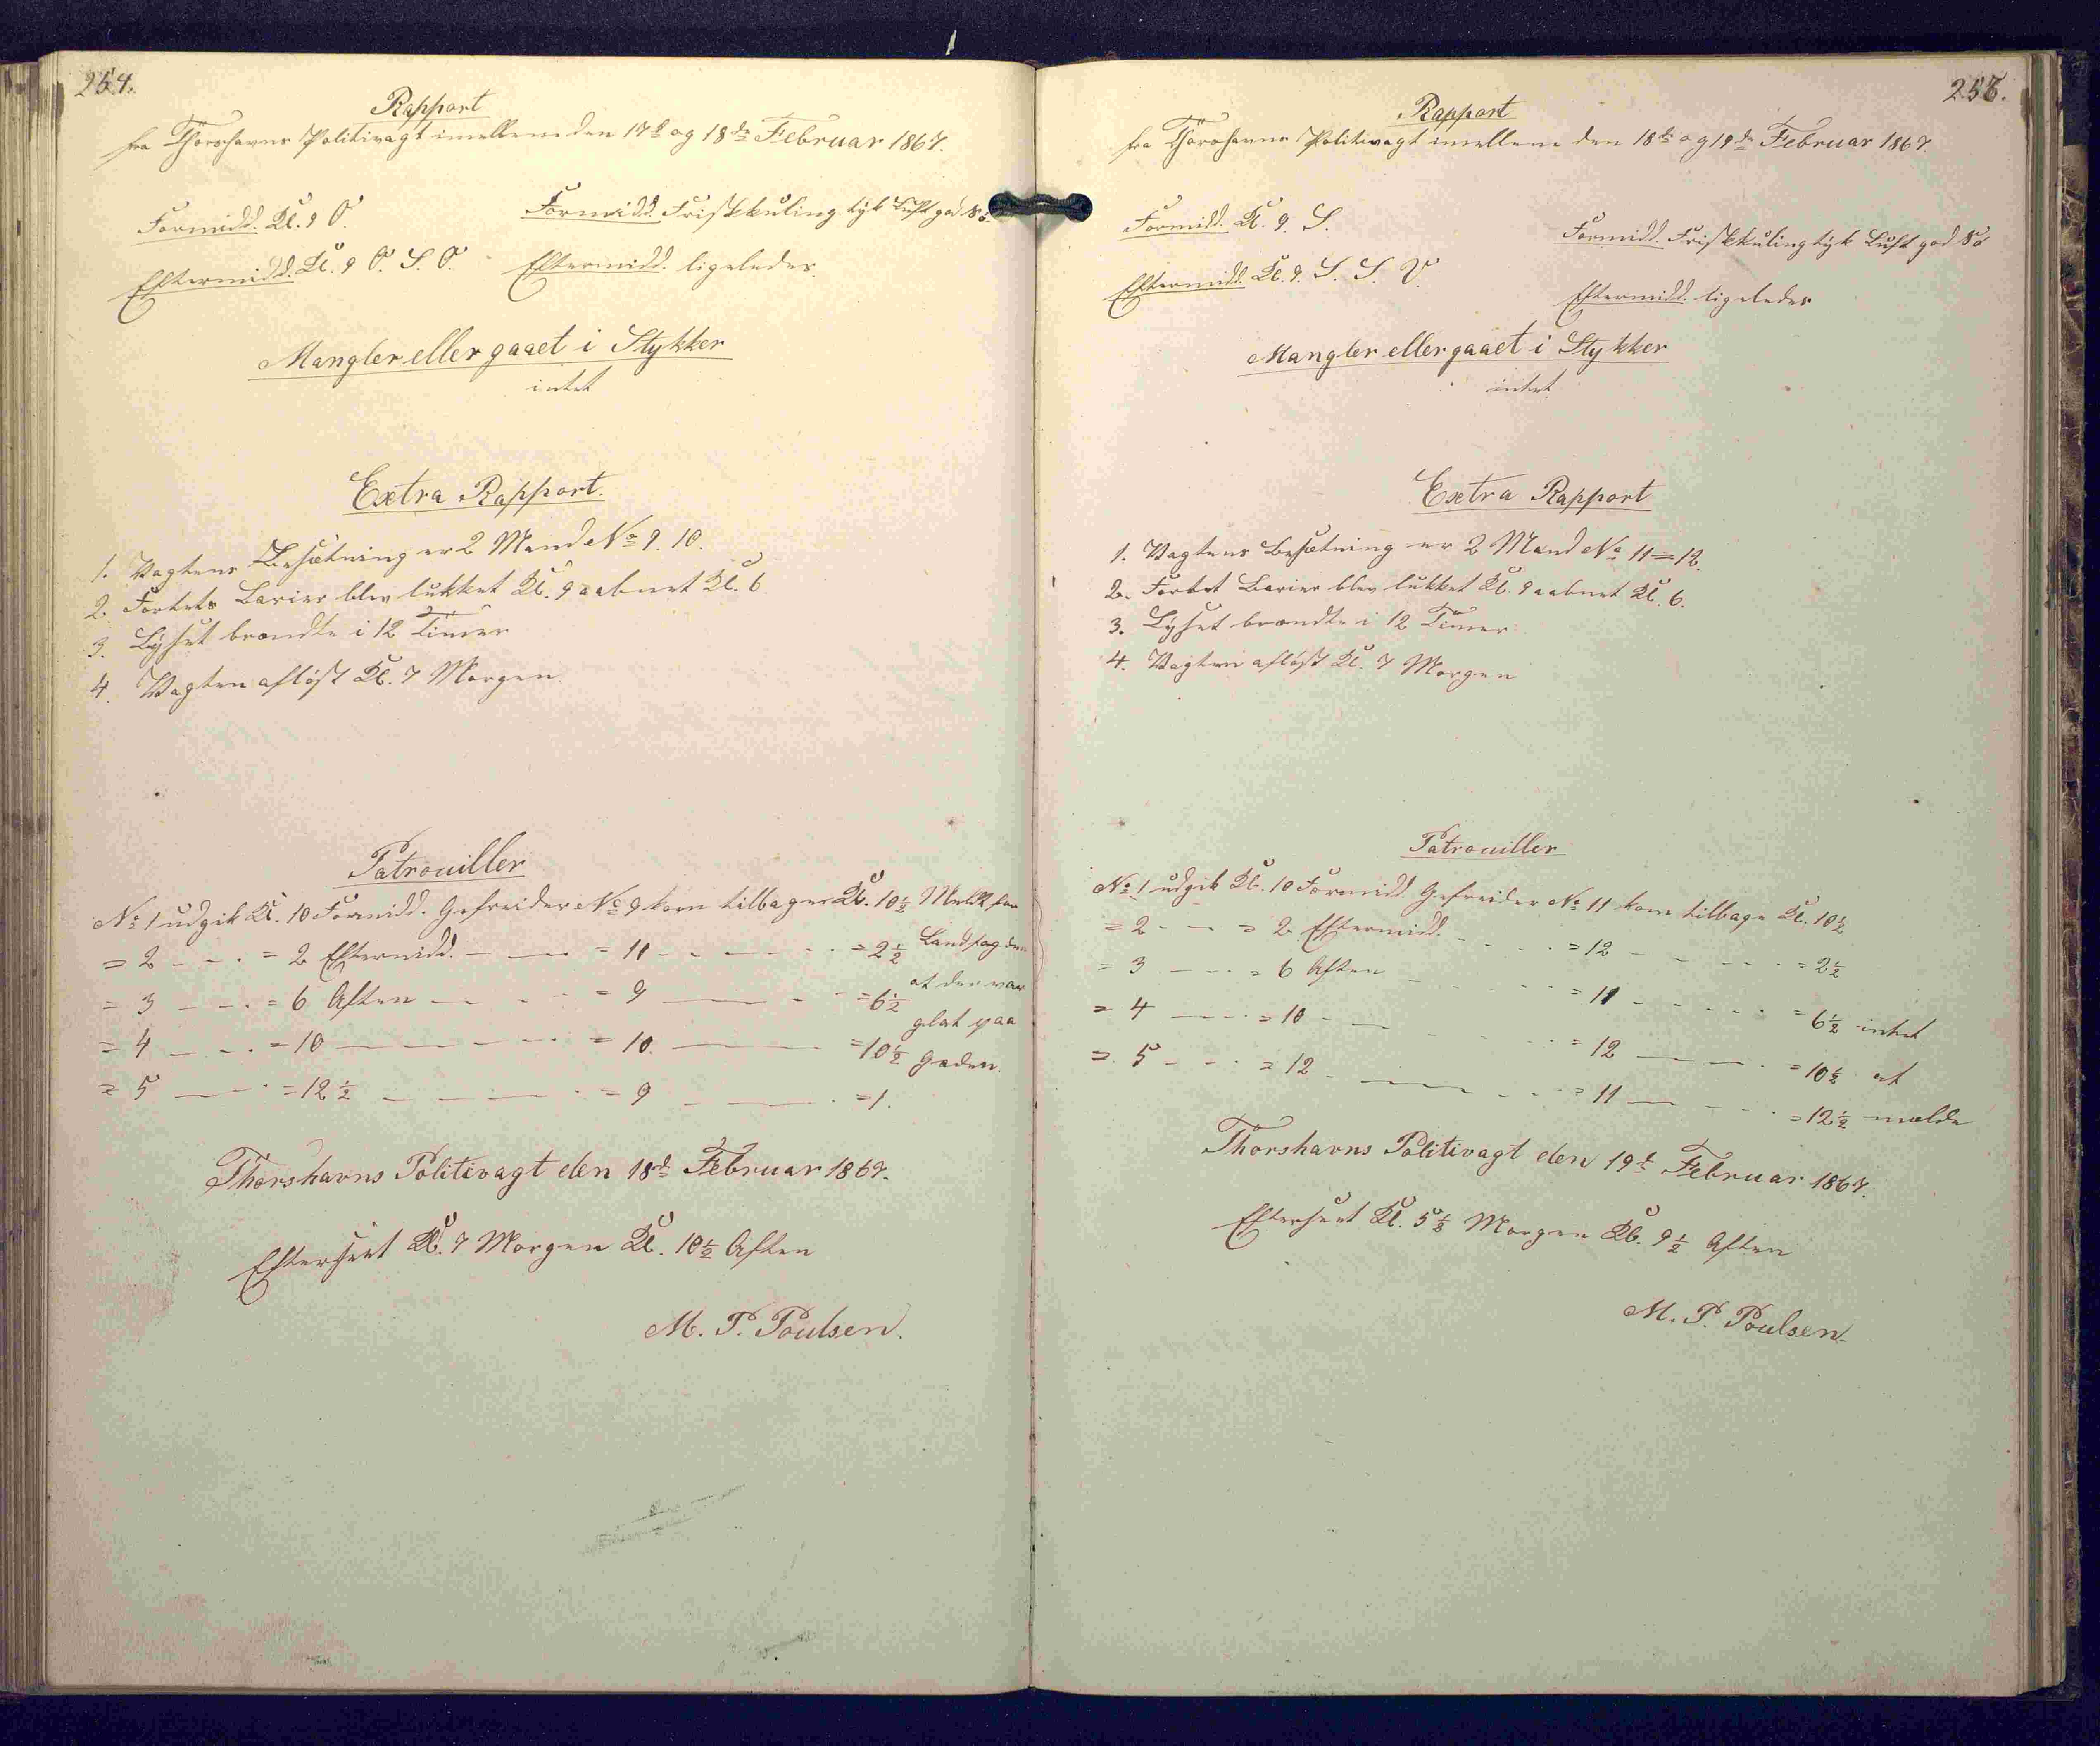 254.
Rapport
fra Thorshavns Politivagt imellem den 17de og 18de Februar 1867.
Formidd. Kl. 9 O. Formidd. Friskkuling tyk Luft god Sö.
Eftermidd. Kl. 9 O. S. O. Eftermidd. ligeledes.
Mangler eller gaaet i Stykker
intet
Extra Rapport.
1. Vagtens Besætning er 2 Mand No 9. 10.
2. Fortets Barier blev lukket Kl. 9 aabnet Kl. 6
3. Lyset brændte i 12 Timer
4. Vagten aflöst Kl. 7 Morgen.
Patrouiller
No 1 udgik Kl. 10 Formidd. Gefreider No 9 kom tilbage Kl. 10½
= 2 - - . = 2 Eftermidd. - - = 11 - - - - = 2½ Landfogden
= 3 - - . = 6 Aften - - - = 9 - - - = 6½ at der var
= 4 - - . = 10 - - - = 10. - - = 10½ glat paa
= 5 - - . = 12½ - - - = 9 - - . = 1. Gaden.
Thorshavns Politivagt den 18de Februar 1867.
Efterseet Kl. 7 Morgen Kl. 10½ Aften
M. P. Poulsen.
255.
Rapport
fra Thorshavns Politivagt imellem den 18de og 19de Februar 1867.
Formidd. Kl. 9. S. Formidd. Friskkuling tyk Luft god Sö
Eftermidd. Kl. 9. S. S. V. Eftermidd. ligeledes
Mangler eller gaaet i Stykker
intet
Extra Rapport
1. Vagtens Besætning er 2 Mand No 11 = 12.
2. Fortet Barier blev lukket Kl. 9 aabnet Kl. 6.
3. Lyset brændte i 12 Timer
4. Vagten aflöst Kl. 7 Morgen
Patrouiller
No 1 udgik Kl. 10 Formidd. Gefreider No 11 kom tilbage Kl. 10½
= 2 - - = 2 Eftermidd. - - - = 12 - - - - = 2½
= 3 - - . = 6 Aften - - - = 11 - - - - = 6½ intet
= 4 - - . = 10 - - - = 12 - - . = 10½ at
= 5 - - . = 12 - - - = 11 - - - = 12½ melde
Thorshavns Politivagt den 19de Februar 1867.
Efterseet Kl. 5½ Morgen Kl. 9½ Aften
M. P. Poulsen